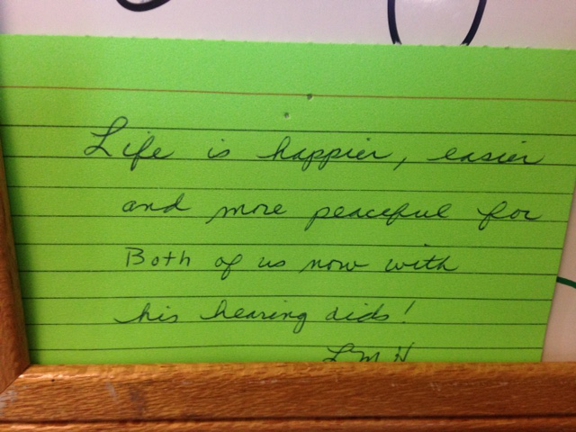 Life is happier, easier
and more peaceful for
Both of us now with
his hearing aids!